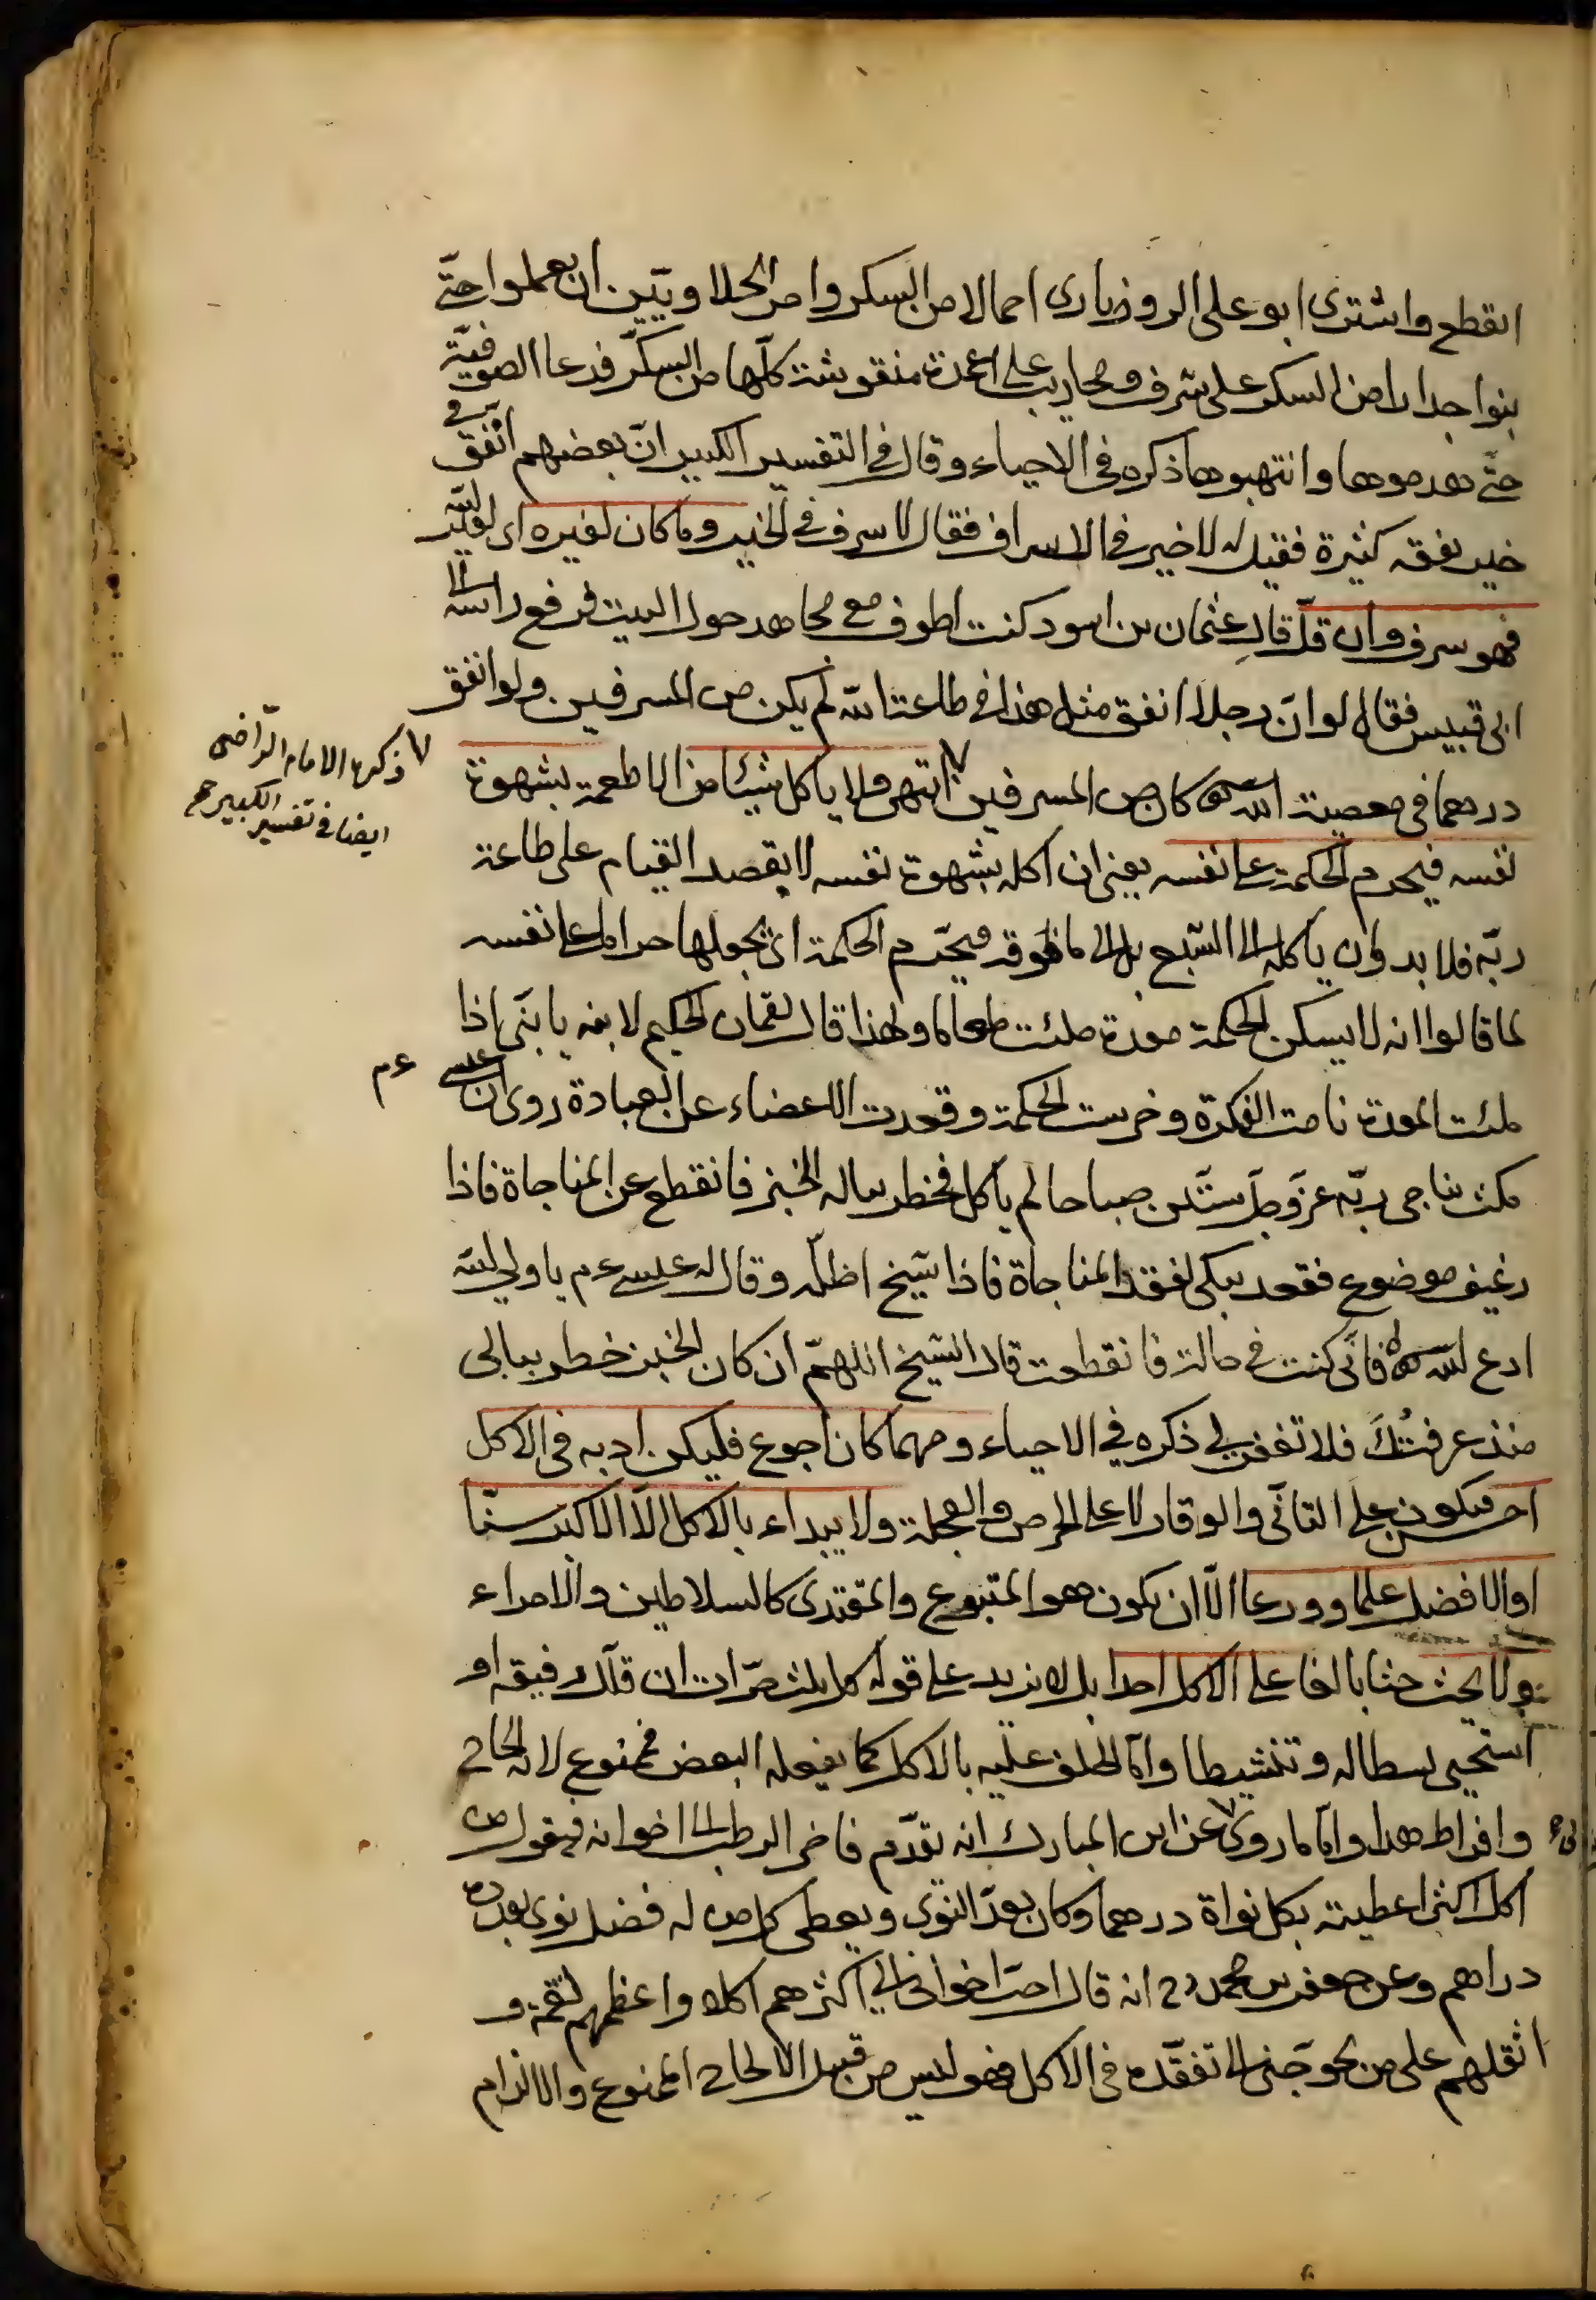 انقطع واشترى ابو على الروذبارى احمالا من السكر وامر الحلاويين ان يعملوا حتّى
بنوا جدارا من السكر على شرف ومحاريب على اعمدة منقوشة كلّها من السكّر فدعا الصوفيّة
حتّى هدموها وانتهبوها ذكره فى الاحياء وقال فى التفسير الكبير انّ بعضهم انفق فى
خير نفقه كثيرة فقيل له لا خير فى الاسراف فقال لا سرف فى الخير وما كان لغيره اى لغير الله
فهو سرف وان قلّ قال عثمان بن اسود كنت اطوف مع مجاهد حول البيت فرفع رأسه الى
ابى قبيس فقال لو انّ رجلا انفق مثل هذا فى طاعة الله لم يكن من المسرفين ولو انفق
درهما فى معصية الله كان من المسرفين انتهى ولا يأكل شيئا من الاطعمة بشهوة
ذكره الامام الرّاضى
ايضا فى تفسير الكبير
نفسه فيحرم الحكمة على نفسه يعنى ان اكله بشهوة نفسه لا بقصد القيام على طاعة
ربّه فلا بد وان يأكله الى الشبع بل الى ما فوقه فيحّرم الحكمة اى يجعلها حراما على نفسه
لما قالوا انه لا يسكن الحكمة معدة ملئت طعاما ولهذا قال لقمان الحكيم لابنه يا بنّى اذا
ملئت المعدة نامت الفكرة وخرست الحكمة وقعدت الاعضاء عن العبادة روى ان عيسى ع م
مكث يناجى ربّه عزّ وجلّ ستّين صباحا لم يأكل فخطر بباله الخبز فانقطع عن المناجاة فاذا
رغيف موضوع فقعد يبكى لفقد المناجاة فاذا شيخ اظلّه وقال له عيسى ع م يا ولي الله
ادع الله فانّى كنت فى حالة فانقطعت قال الشيخ اللهمّ ان كان الخبز خطر ببالى
منذ عرفتُك فلا تغفر لى ذكره فى الاحياء ومهما كان اجوع فليكن ادبه فى الاكل
احسن فيكون على التأنّى والوقار لا على الحرص والعجلة ولا يبداء بالاكل الّا الاكبر سنّا
او الافضل علما وورعا الّا ان يكون هو المتبوع والمقتدى كالسلاطين والامراء
ولا يحث حثا بالغا على الاكل احدا بل لا يزيد على قوله كل ثلث مرّات ان قلّل رفيقه او
استحيى بسطا له وتنشيطا وامّا الحلف عليه بالاكل كما يفعله البعض فممنوع لانه الحاح
وافراط هذا وامّا ما روى عن ابن المبارك انه يقدّم فاخر الرطب الى اخوانه فيقول من
اكل اكثر اعطيته بكل نواة درهما وكان يعدّ النوى ويعطى كل من له فضل نوى بعدده
دراهم وعن جعفر بن محمد انه قال احبّ اخوانى الىّ اكثرهم اكلا واعظمهم لقمة و
اثقلهم على من يحوجنى الى تفقّده فى الاكل فهو ليس من قبيل الالحاح الممنوع والالزام